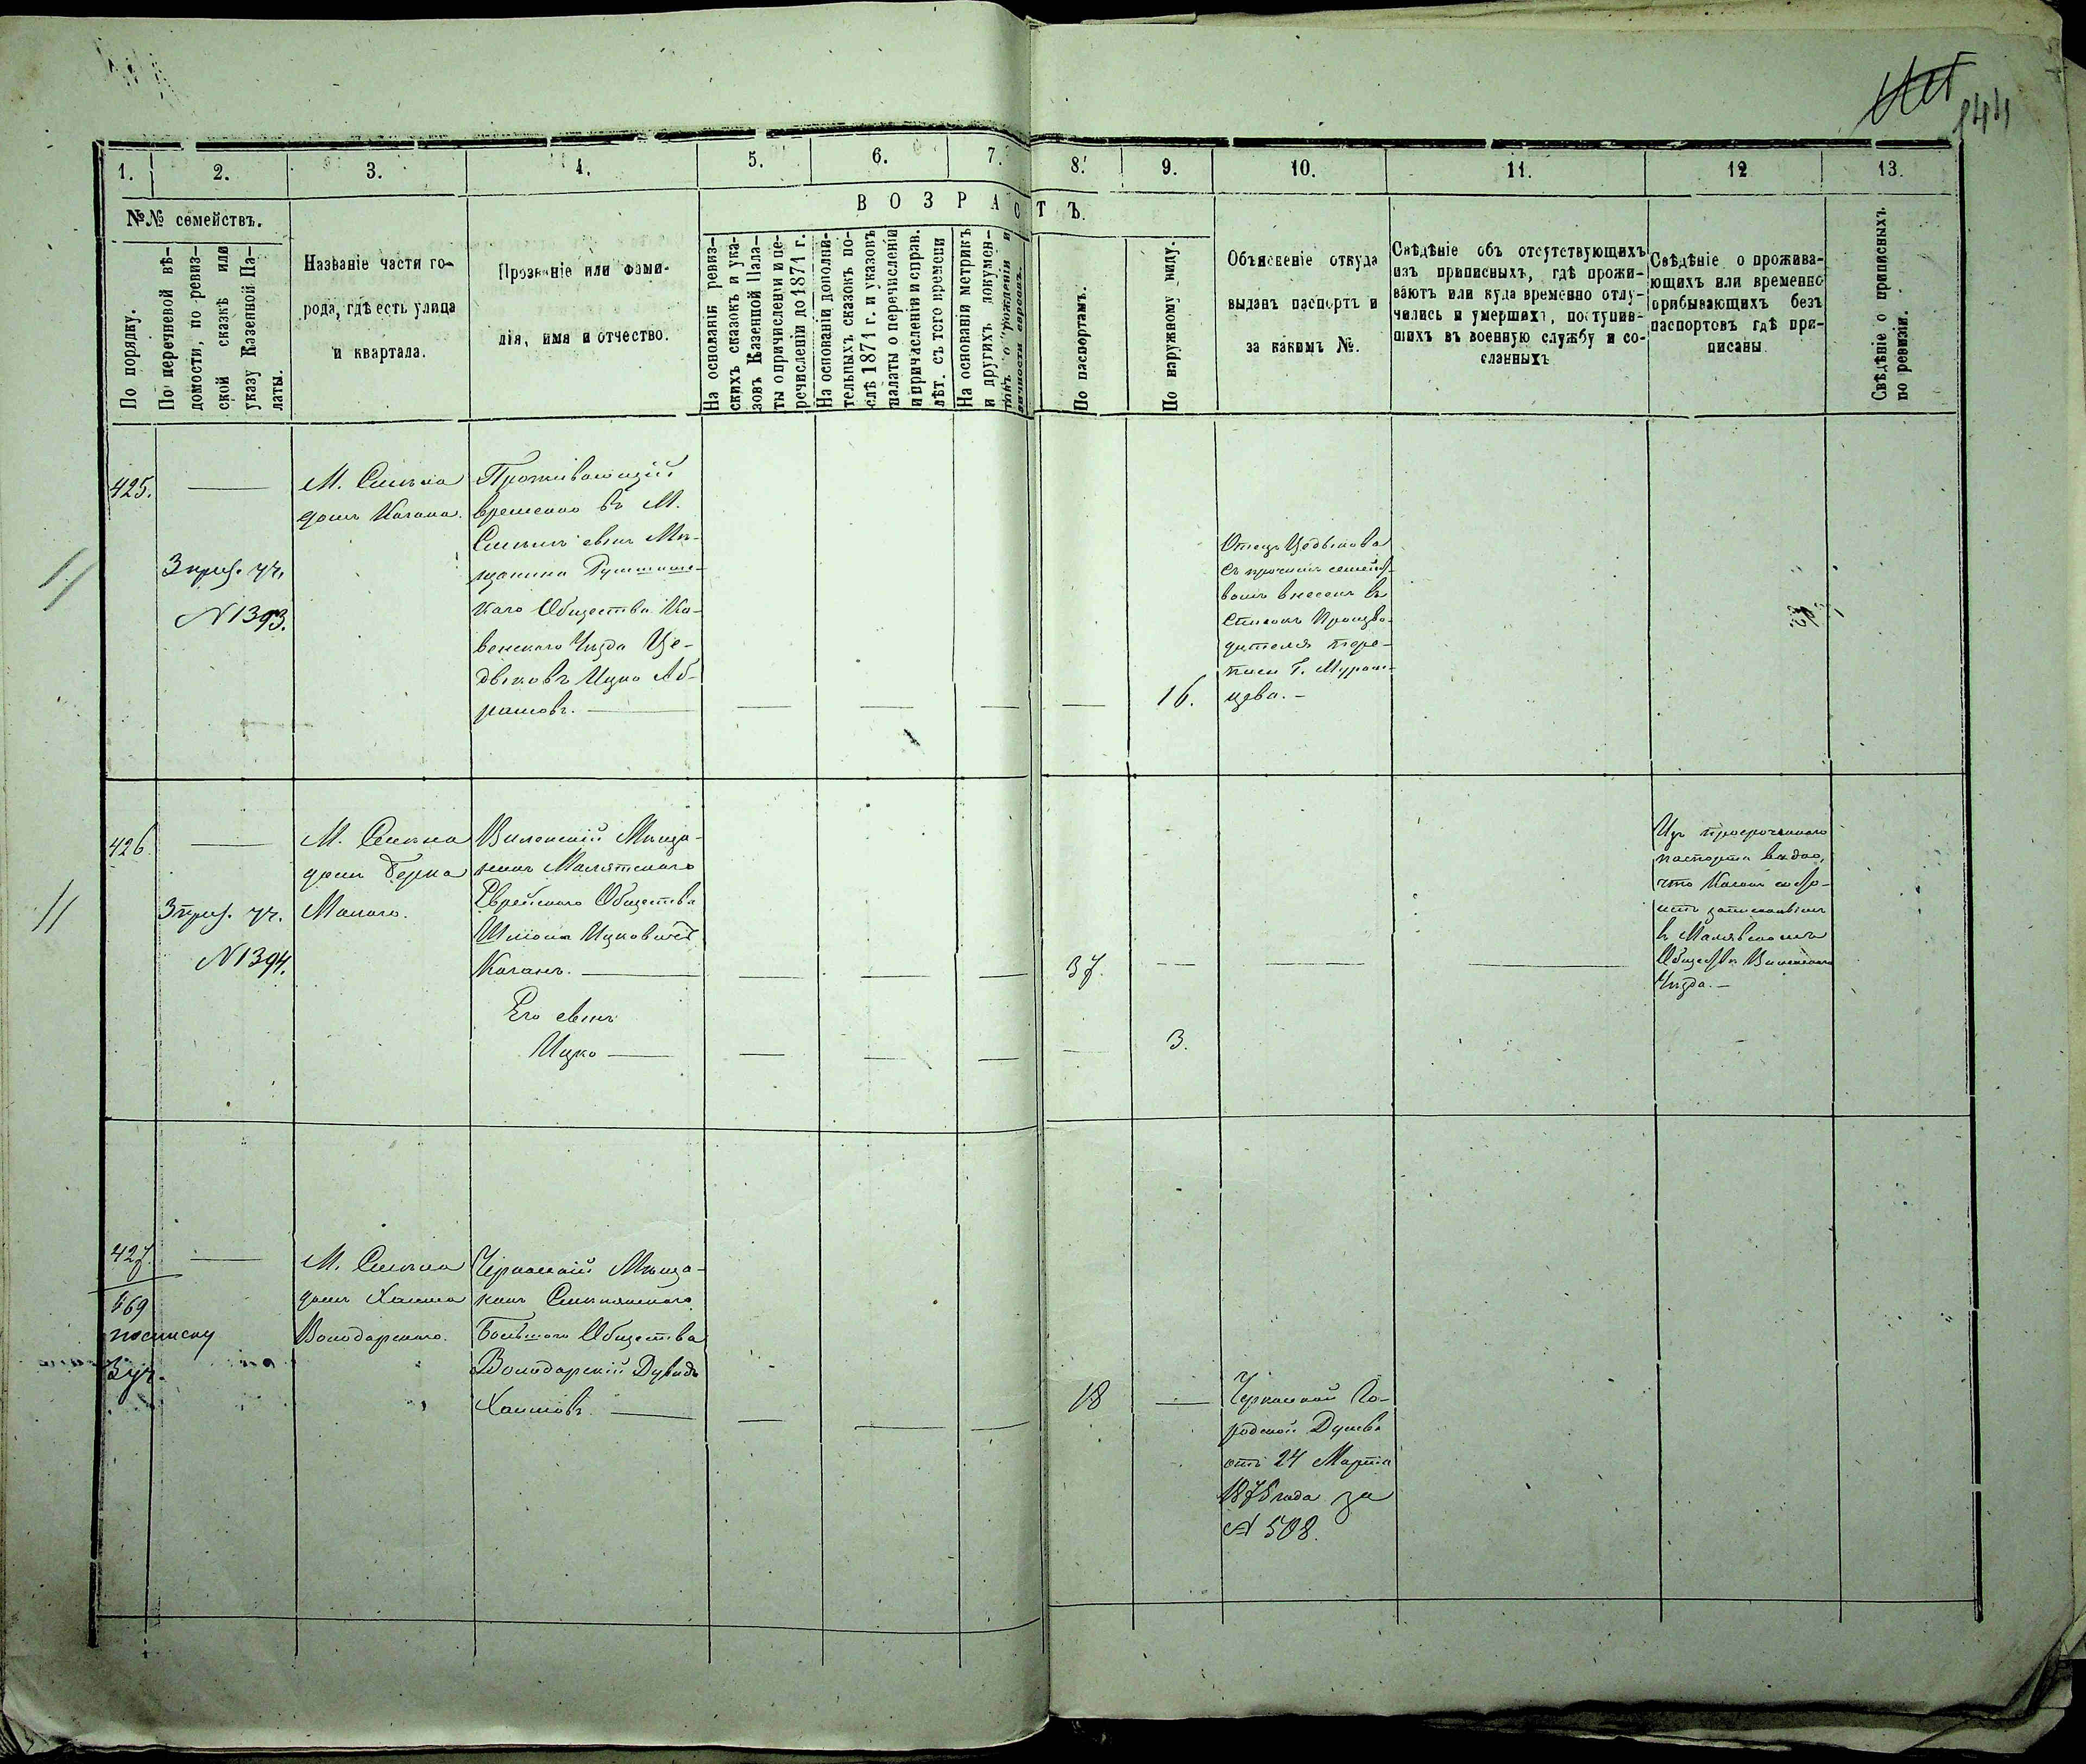 144
1.
2.
3.
4.
5.
6.
7.
8.
9.
10.
11.
12
13.
№№ семействъ.
По порядку.
По перечневой вѣ-
домости, по ревиз-
ской сказкѣ или
указу Казенной Па-
латы.
Названіе части го-
рода, гдѣ есть улица
и квартала.
Прозваніе или фами-
лія, имя и отчество.
ВОЗРАСТЪ.
На основаніи ревиз-
скихъ сказокъ и ука-
зовъ Казенной Пала-
ты о причисленіи и пе-
речисленіи до 1871 г.
На основаніи дополни-
тельныхъ сказокъ по-
слѣ 1871 г. и указовъ
палаты о перечисленіи
и причисленіи и справ.
лѣт. съ того времени
На основаніи метрикъ
и другихъ докумен-
товъ о рожденіи и
личности евреевъ.
По паспортамъ.
По наружному виду.
Объясненіе откуда
выданъ паспортъ и
за какимъ №.
Свѣдѣніе объ отсутствующихъ
изъ приписныхъ, гдѣ прожи-
ваютъ или куда временно отлу-
чились и умершихъ, поступив-
шихъ въ военную службу и со-
сланныхъ
Свѣдѣніе о прожива-
ющихъ или временно
прибывающихъ безъ
паспортовъ гдѣ при-
писаны.
Свѣдѣніе о приписныхъ
по ревизіи.
425.
3 приз. уч.
№ 1393.
М. Смѣла
домъ Кагана.
Проживающій
временно въ М.
Смѣлѣ сынъ Мѣ-
щанина
каго Общества Ко-
венскаго Уѣзда Це-
дьковъ Ицко Аб-
рамовъ.
16.
Отецъ Цедькова
съ прочимъ семейст-
вомъ внесенъ въ
списокъ Производ-
дителя пере-
писи Г. Муран-
цева.
426.
3 приз. уч.
№ 1394.
М. Смѣла
домъ Берка
Малаго.
Виленскій Мѣща-
нинъ Малятскаго
Еврейскаго Общества
Шлiома Ицковичъ
Каганъ.
37.
Его сынъ
Ицко
3.
Изъ просроченнаго
паспорта видно,
что Каганъ состо-
итъ записаннымъ
въ
Обществѣ Виленскаго
Уѣзда.
427.
569
по списку
3 уч.
М. Смѣла
домъ Хаима
Володарскаго.
Черкаскій Мѣща-
нинъ Смѣлянскаго
Большаго Общества
Володарскій Дувидъ
Хаимовъ.
18
Черкаской Го-
родской Думы
отъ 24 Марта
1875 года за
№ 508.